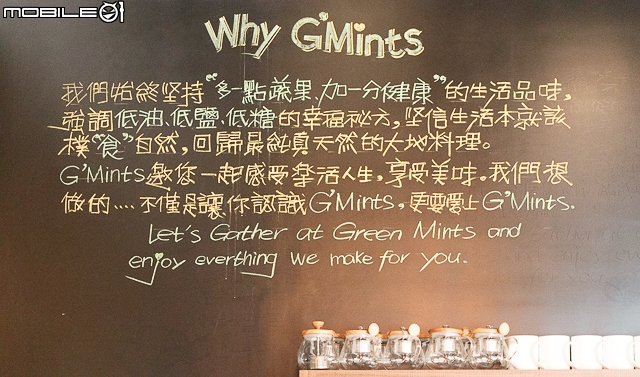 MOBILE01
Why G'Mints
我們始終堅持"多一點蔬果、加一分健康"的生活品味，
強調低油、低鹽、低糖的幸福秘方，堅信生活本就該
樸"食"自然，回歸最純真天然的大地料理。
G'Mints邀您一起感受樂活人生，享受美味。我們想
做的....不僅是讓你認識G'Mints，更要愛上G'Mints.
Let's Gather at Green Mints and
enjoy everthing we make for you.